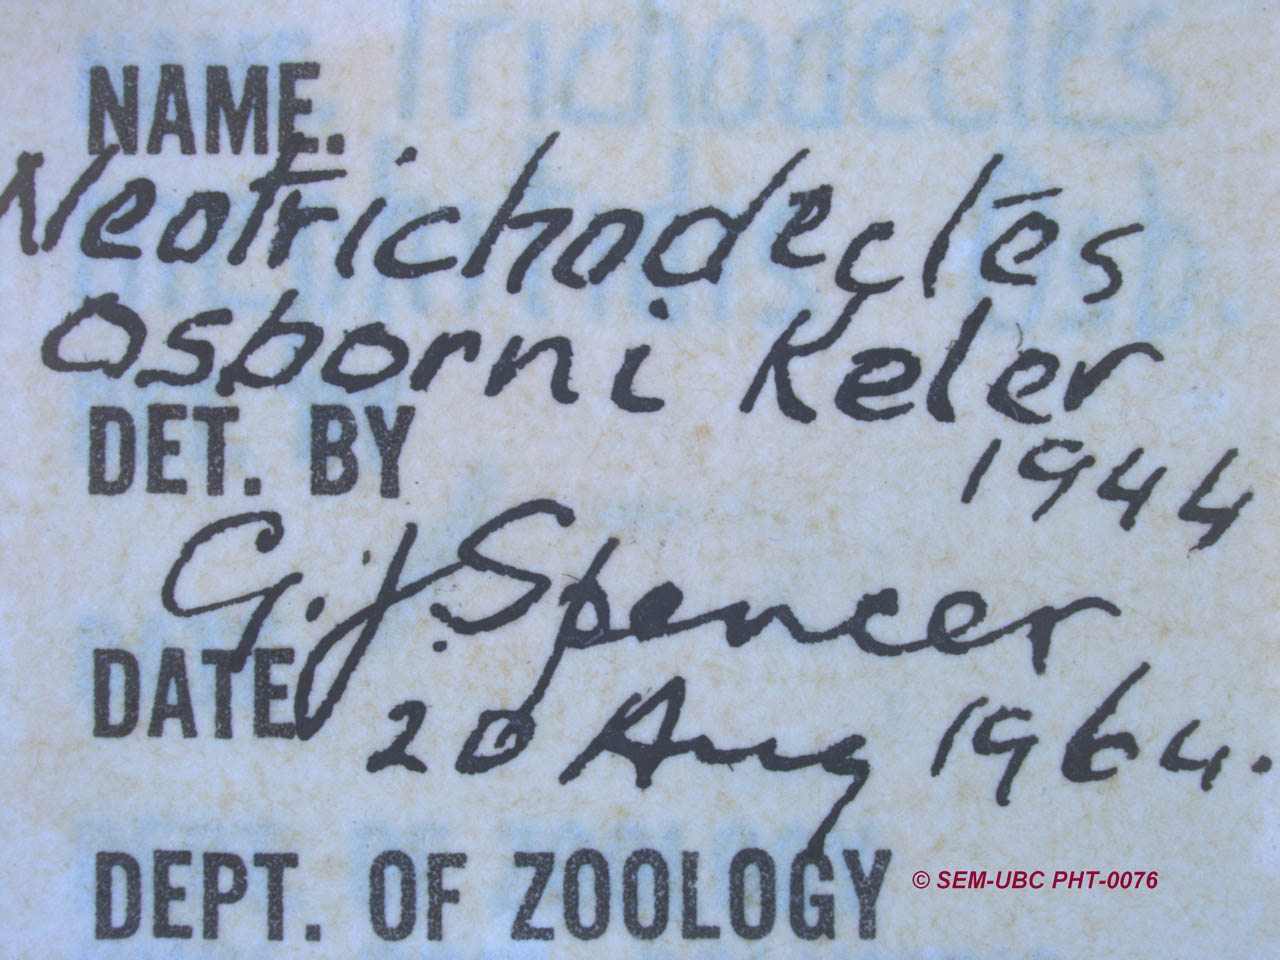 NAME.
Neotrichodectes
Osborni Keler
1944
DET. BY
G. J. Spencer
DATE
20 Aug 1964.
DEPT. OF ZOOLOGY
© SEM-UBC PHT-0076